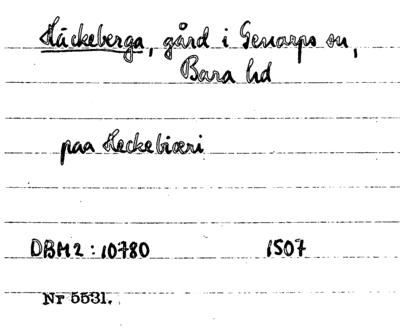 Häckeberga, gård i Genarps sn,
Bara hd
paa Heckebiæri
DBM2:10780 1507
Nr 5531.